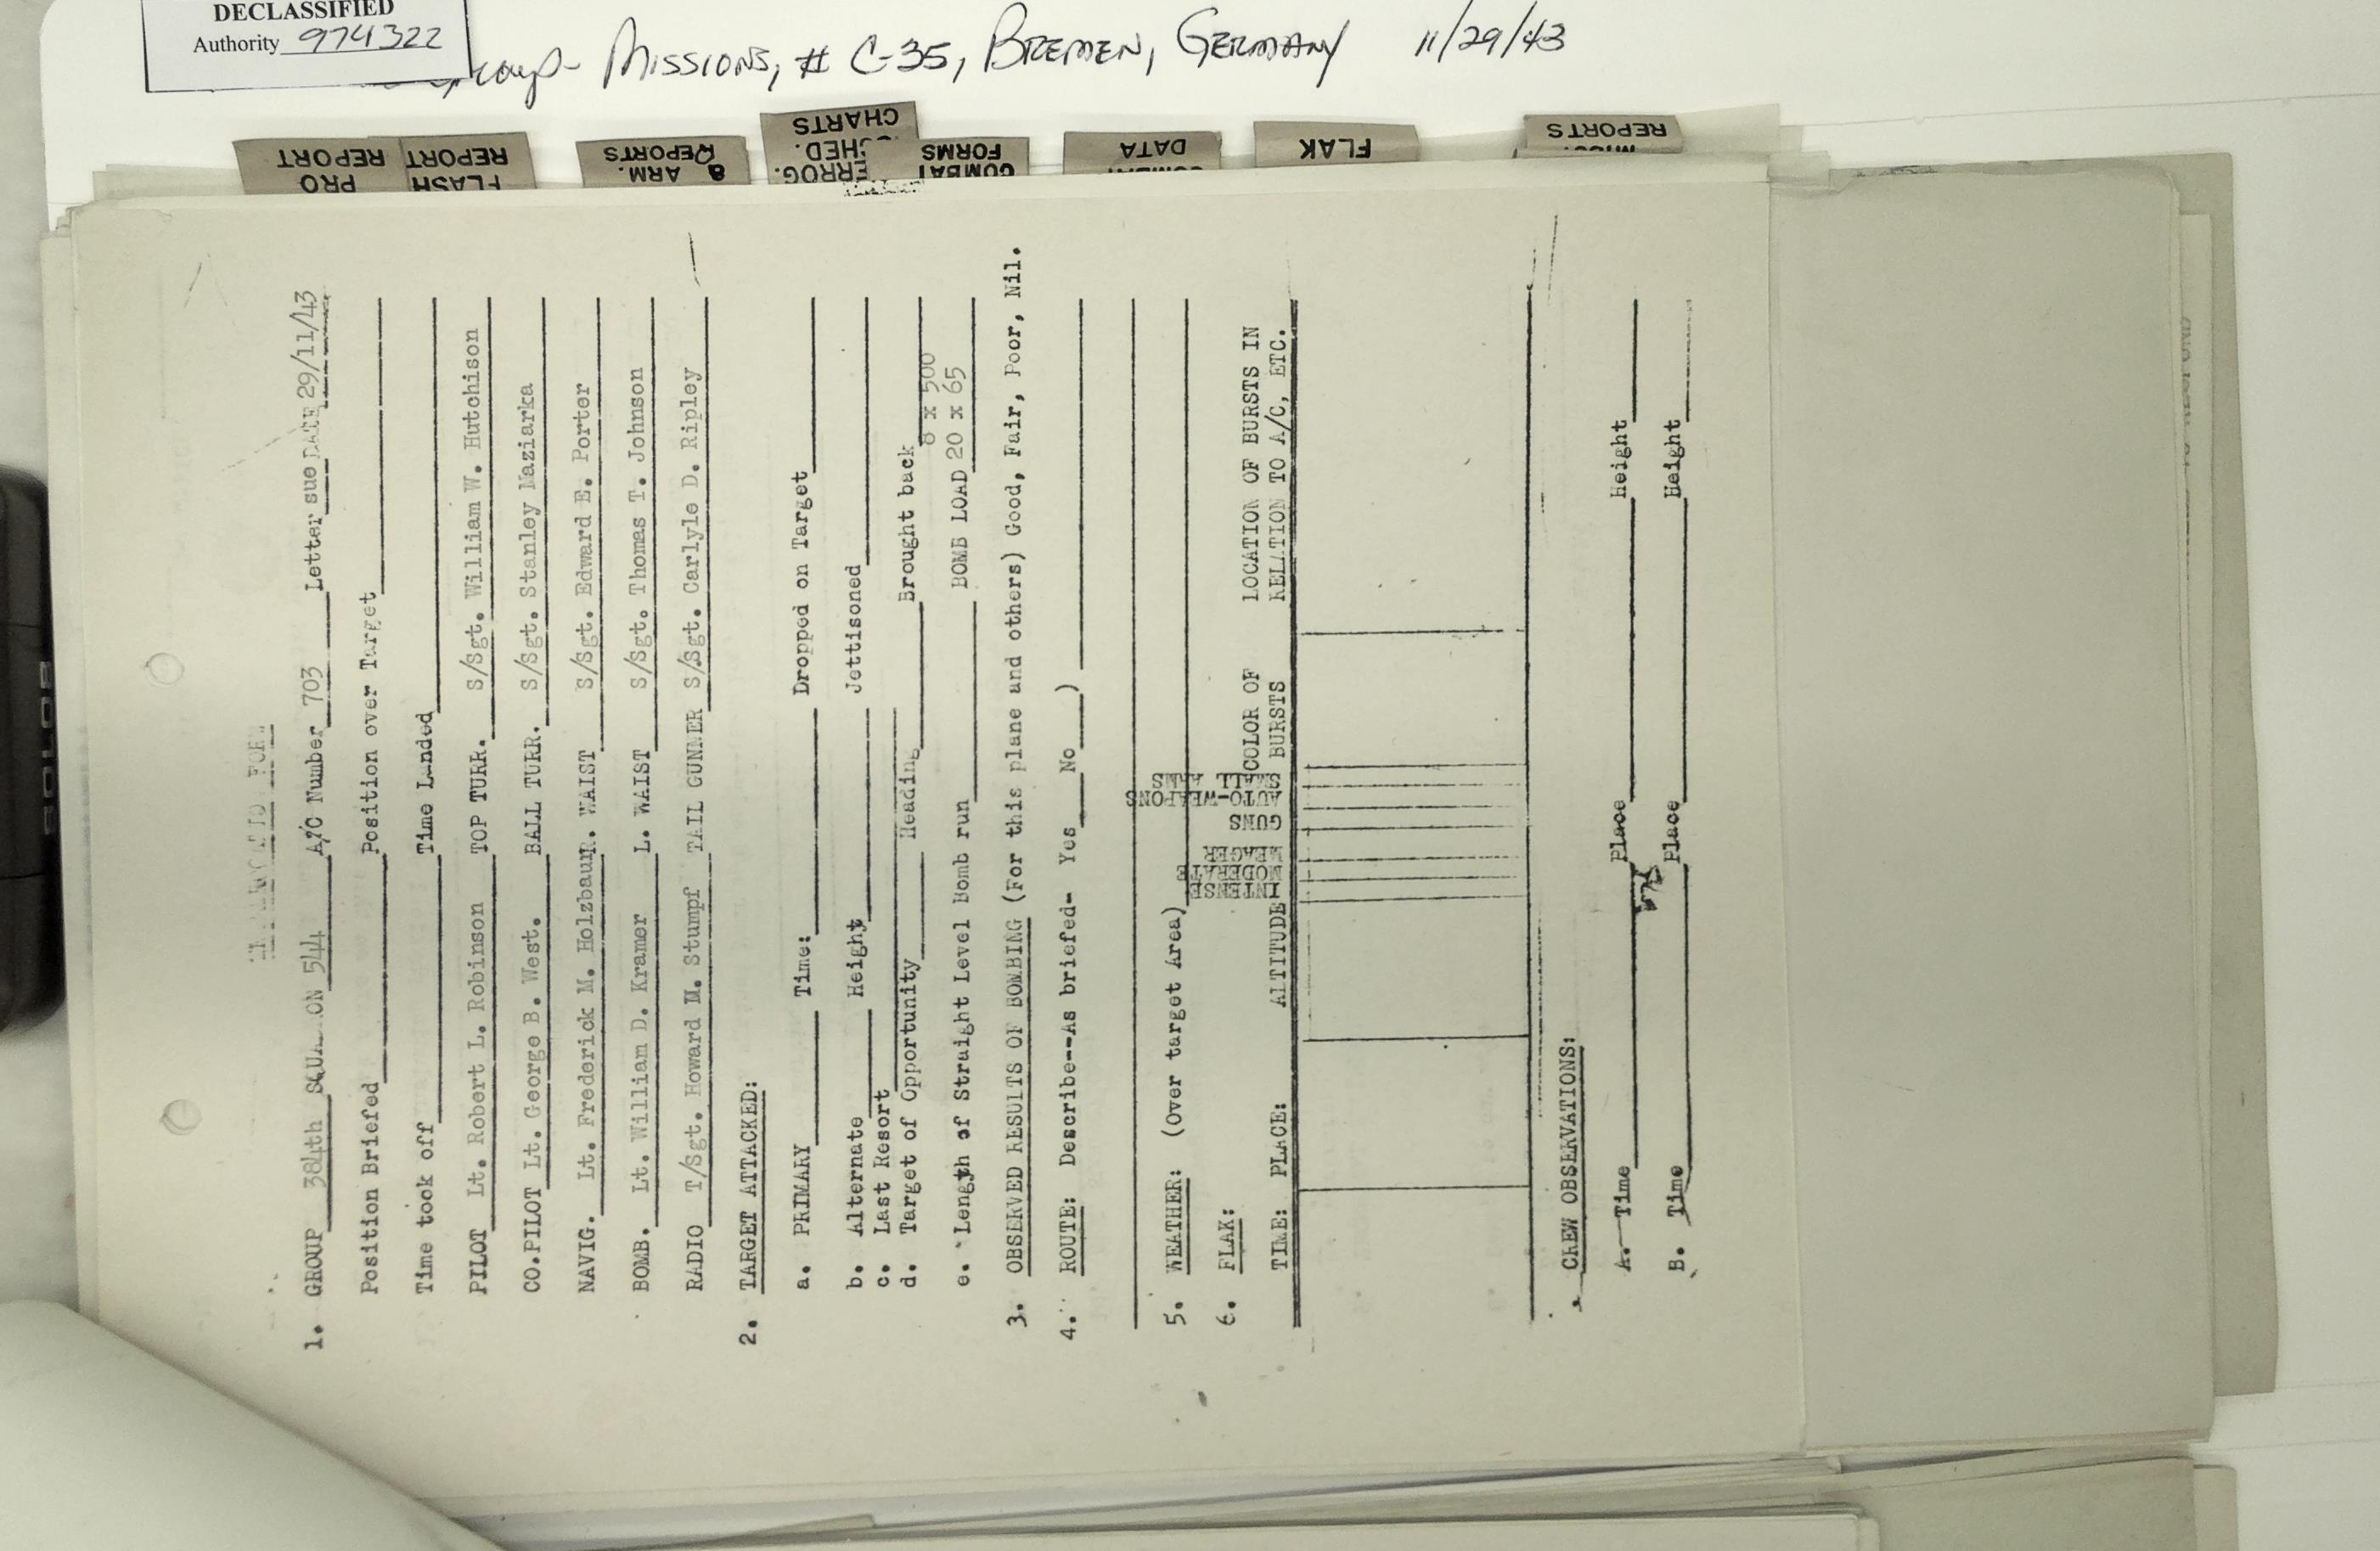 DECLASSIFIED
Authority 974322
Group- Missions, # C-35, Bremen, Germany 11/29/43
PRO
REPORT
FLASH
REPORT
ARM.
REPORTS
CHARTS
COMBAT
FORMS
DATA
FLAK
REPORTS
1. GROUP 384th ON 544 A/C Number 703 Letter sue DATE 29/11/43
Position Briefed Position over Target
Time took off Time Landed
PILOT Lt. Robert L. Robinson TOP TURR. S/Sgt. William W. Hutchison
CO.PILOT Lt. George B. West. BALL TURR. S/Sgt. Stanley Maziarka
NAVIG. Lt. Frederick M. Holzbaur R. WAIST S/Sgt. Edward E. Porter
BOMB. Lt. William D. Kramer L. WAIST S/Sgt. Thomas T. Johnson
RADIO T/Sgt. Howard M. Stumpf TAIL GUNNER S/Sgt. Carlyle D. Ripley
2. TARGET ATTACKED:
a. PRIMARY Time: Dropped on Target
b. Alternate Height Jettisoned
c. Last Resort
d. Target of Opportunity Heading Brought back
8 x 500
e. Length of Straight Level Bomb run BOMB LOAD 20 x 65
3. OBSERVED RESULTS OF BOMBING (For this plane and others) Good, Fair, Poor, Nil.
4. ROUTE: Describe--As briefed- Yes No )
5. WEATHER: (Over target Area)
6. FLAK:
TIME: PLACE: ALTITUDE
INTENSE
MODERATE
MEAGER
GUNS
AUTO-WEAPONS
SMALL ARMS
COLOR OF
BURSTS
LOCATION OF BURSTS IN
RELATION TO A/C, ETC.
CREW OBSERVATIONS:
A. Time Place Height
B. Time Place Height